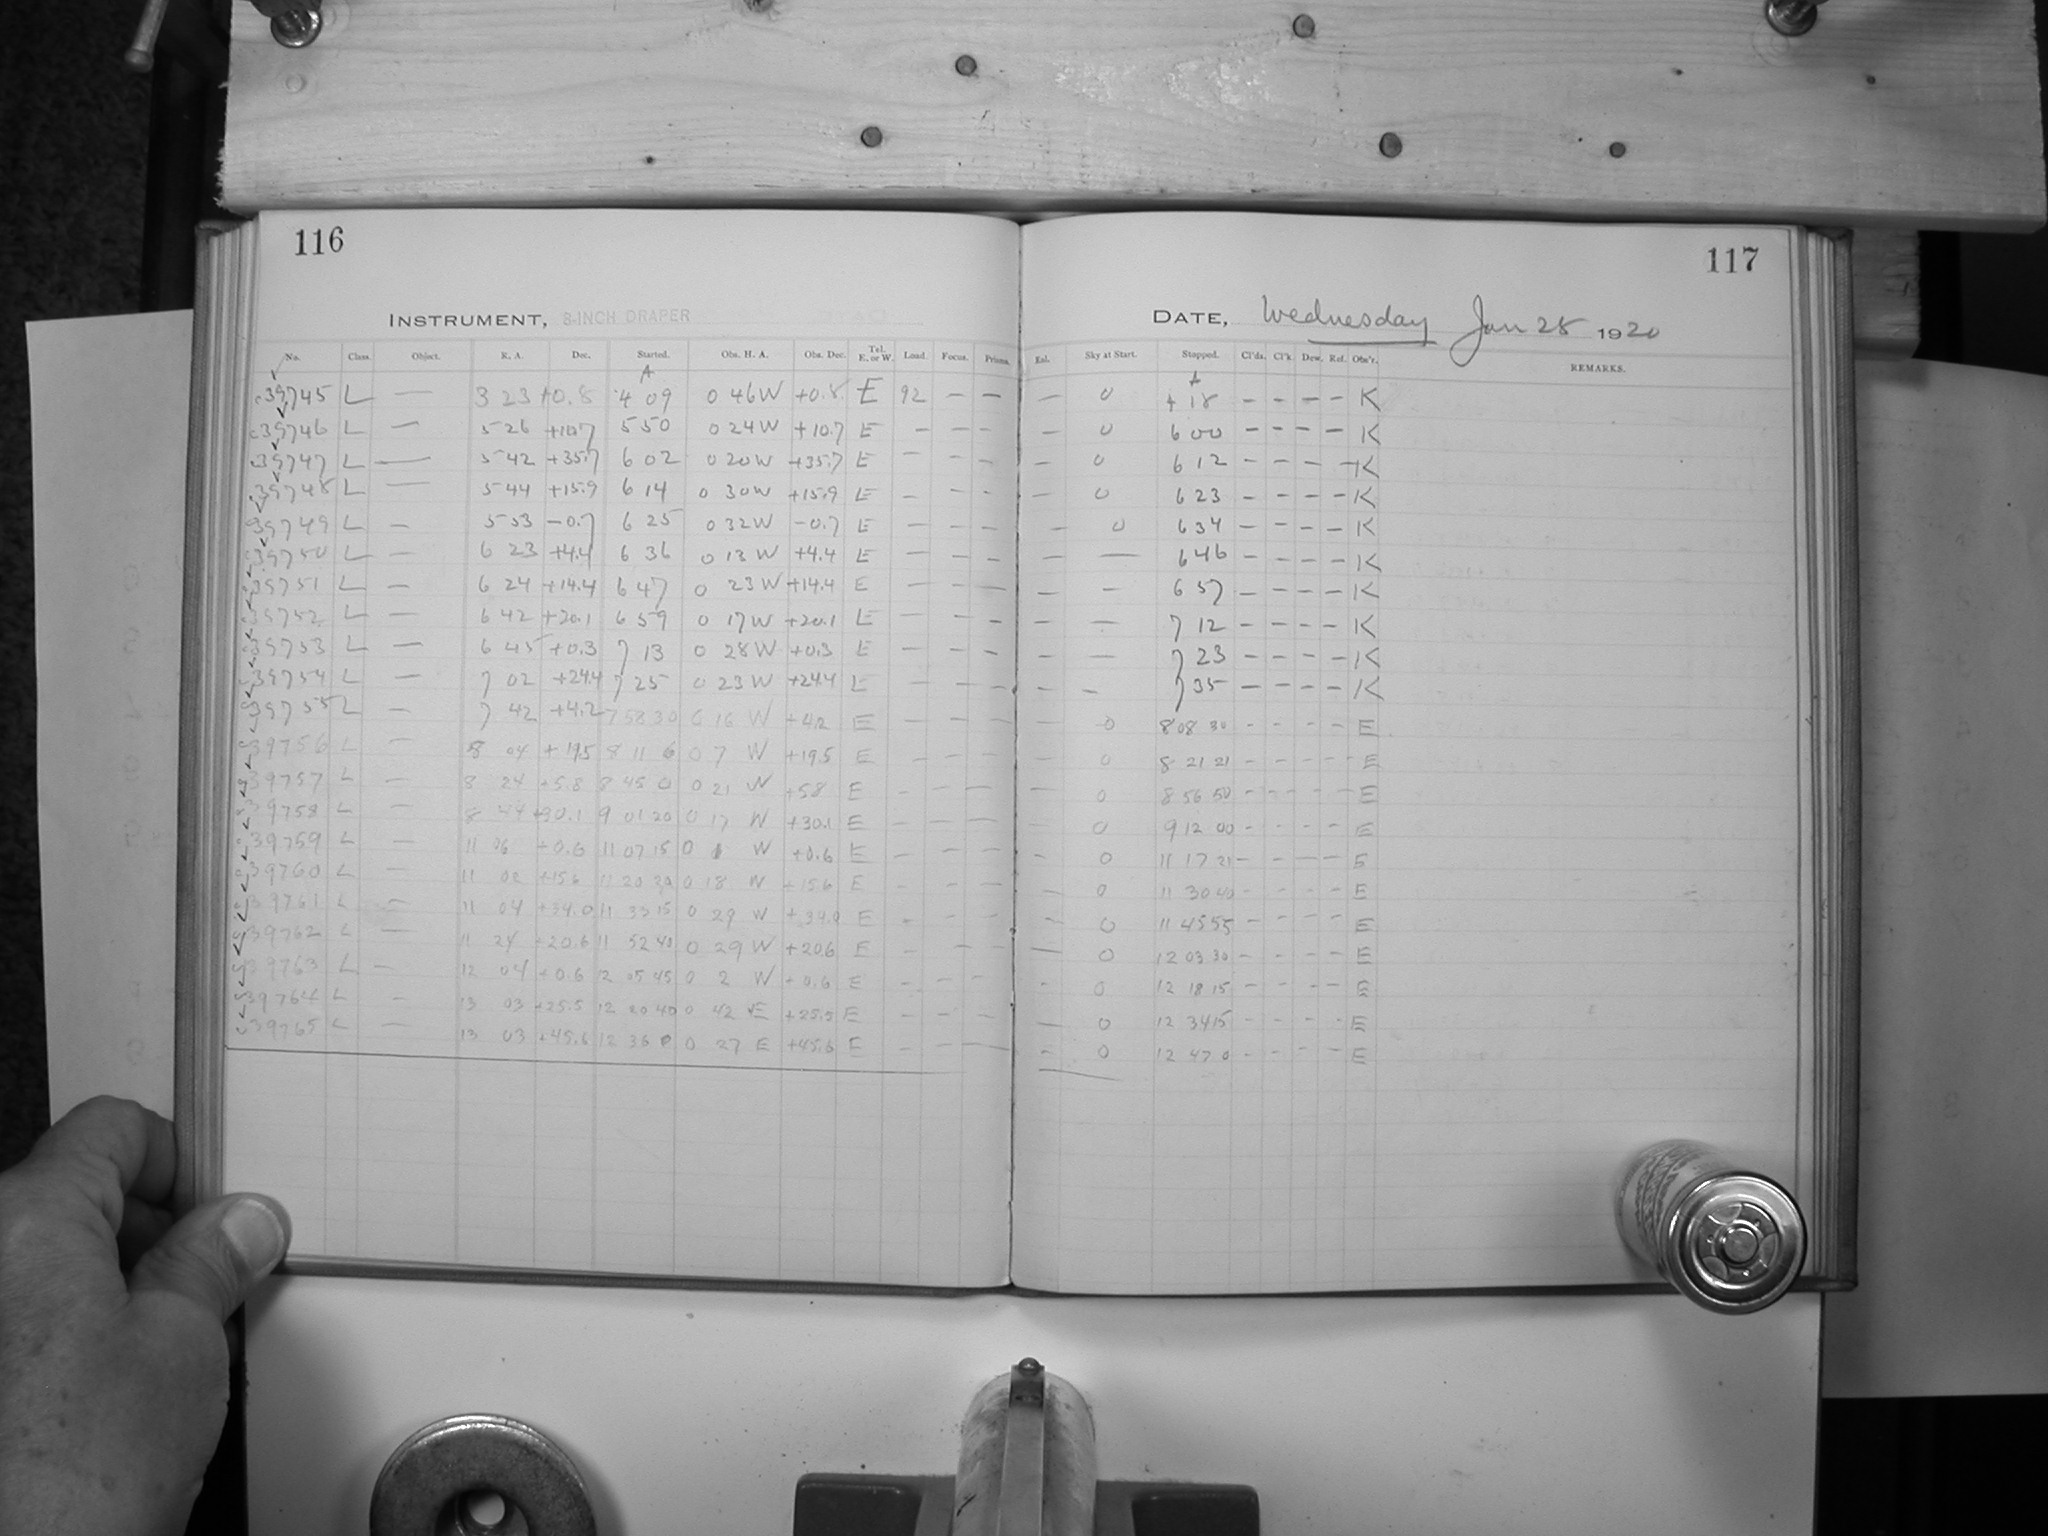 116
117
INSTRUMENT, 8-INCH DRAPER
DATE, Wednesday Jan 28 1920
No. Class. Object. R. A. Dec. Started. Obs. H. A. Obs. Dec. Tel. E. or W. Load. Focus. Prisms. Eal. Sky at Start. Stopped. Cl'ds. Cl'k Dew. Ref. Obs'r. REMARKS.
39745 L — 3 23 +0.8 4 09 0 46 W +0.8 E 92 — — — 0 4 18 — — — — K
39746 L — 5 26 +10.7 5 50 0 24 W +10.7 E — — — — 0 6 00 — — — — K
39747 L — 5 42 +35.7 6 02 0 20 W +35.7 E — — — — 0 6 12 — — — — K
39748 L — 5 44 +15.9 6 14 0 30 W +15.9 E — — — — 0 6 23 — — — — K
39749 L — 5 53 -0.7 6 25 0 32 W -0.7 E — — — — 0 6 34 — — — — K
39750 L — 6 23 +4.4 6 36 0 13 W +4.4 E — — — — — 6 46 — — — — K
39751 L — 6 24 +14.4 6 47 0 23 W +14.4 E — — — — — 6 57 — — — — K
39752 L — 6 42 +20.1 6 59 0 17 W +20.1 E — — — — — 7 12 — — — — K
39753 L — 6 45 +0.3 7 13 0 28 W +0.3 E — — — — — 7 23 — — — — K
39754 L — 7 02 +24.4 7 25 0 23 W +24.4 E — — — — — 7 35 — — — — K
39755 L — 7 42 +4.2 7 58 30 0 16 W +4.2 E — — — — 0 8 08 30 — — — — E
39756 L — 8 04 +19.5 8 11 6 0 7 W +19.5 E — — — — 0 8 21 21 — — — — E
39757 L — 8 24 +5.8 8 45 0 0 21 W +5.8 E — — — — 0 8 56 50 — — — — E
39758 L — 8 44 +30.1 9 01 20 0 17 W +30.1 E — — — — 0 9 12 00 — — — — E
39759 L — 11 06 +0.6 11 07 15 0 W +0.6 E — — — — 0 11 17 21 — — — — E
39760 L — 11 02 +15.6 11 20 20 0 18 W +15.6 E — — — — 0 11 30 40 — — — — E
39761 L — 11 04 +34.0 11 33 15 0 29 W +34.0 E — — — — 0 11 45 55 — — — — E
39762 L — 11 24 +20.6 11 52 40 0 29 W +20.6 E — — — — 0 12 03 30 — — — — E
39763 L — 12 04 +0.6 12 05 45 0 2 W +0.6 E — — — — 0 12 18 15 — — — — E
39764 L — 13 03 +25.5 12 20 40 0 42 E +25.5 E — — — — 0 12 34 15 — — — — E
39765 L — 13 03 +45.6 12 36 0 0 27 E +45.6 E — — — — 0 12 47 0 — — — — E